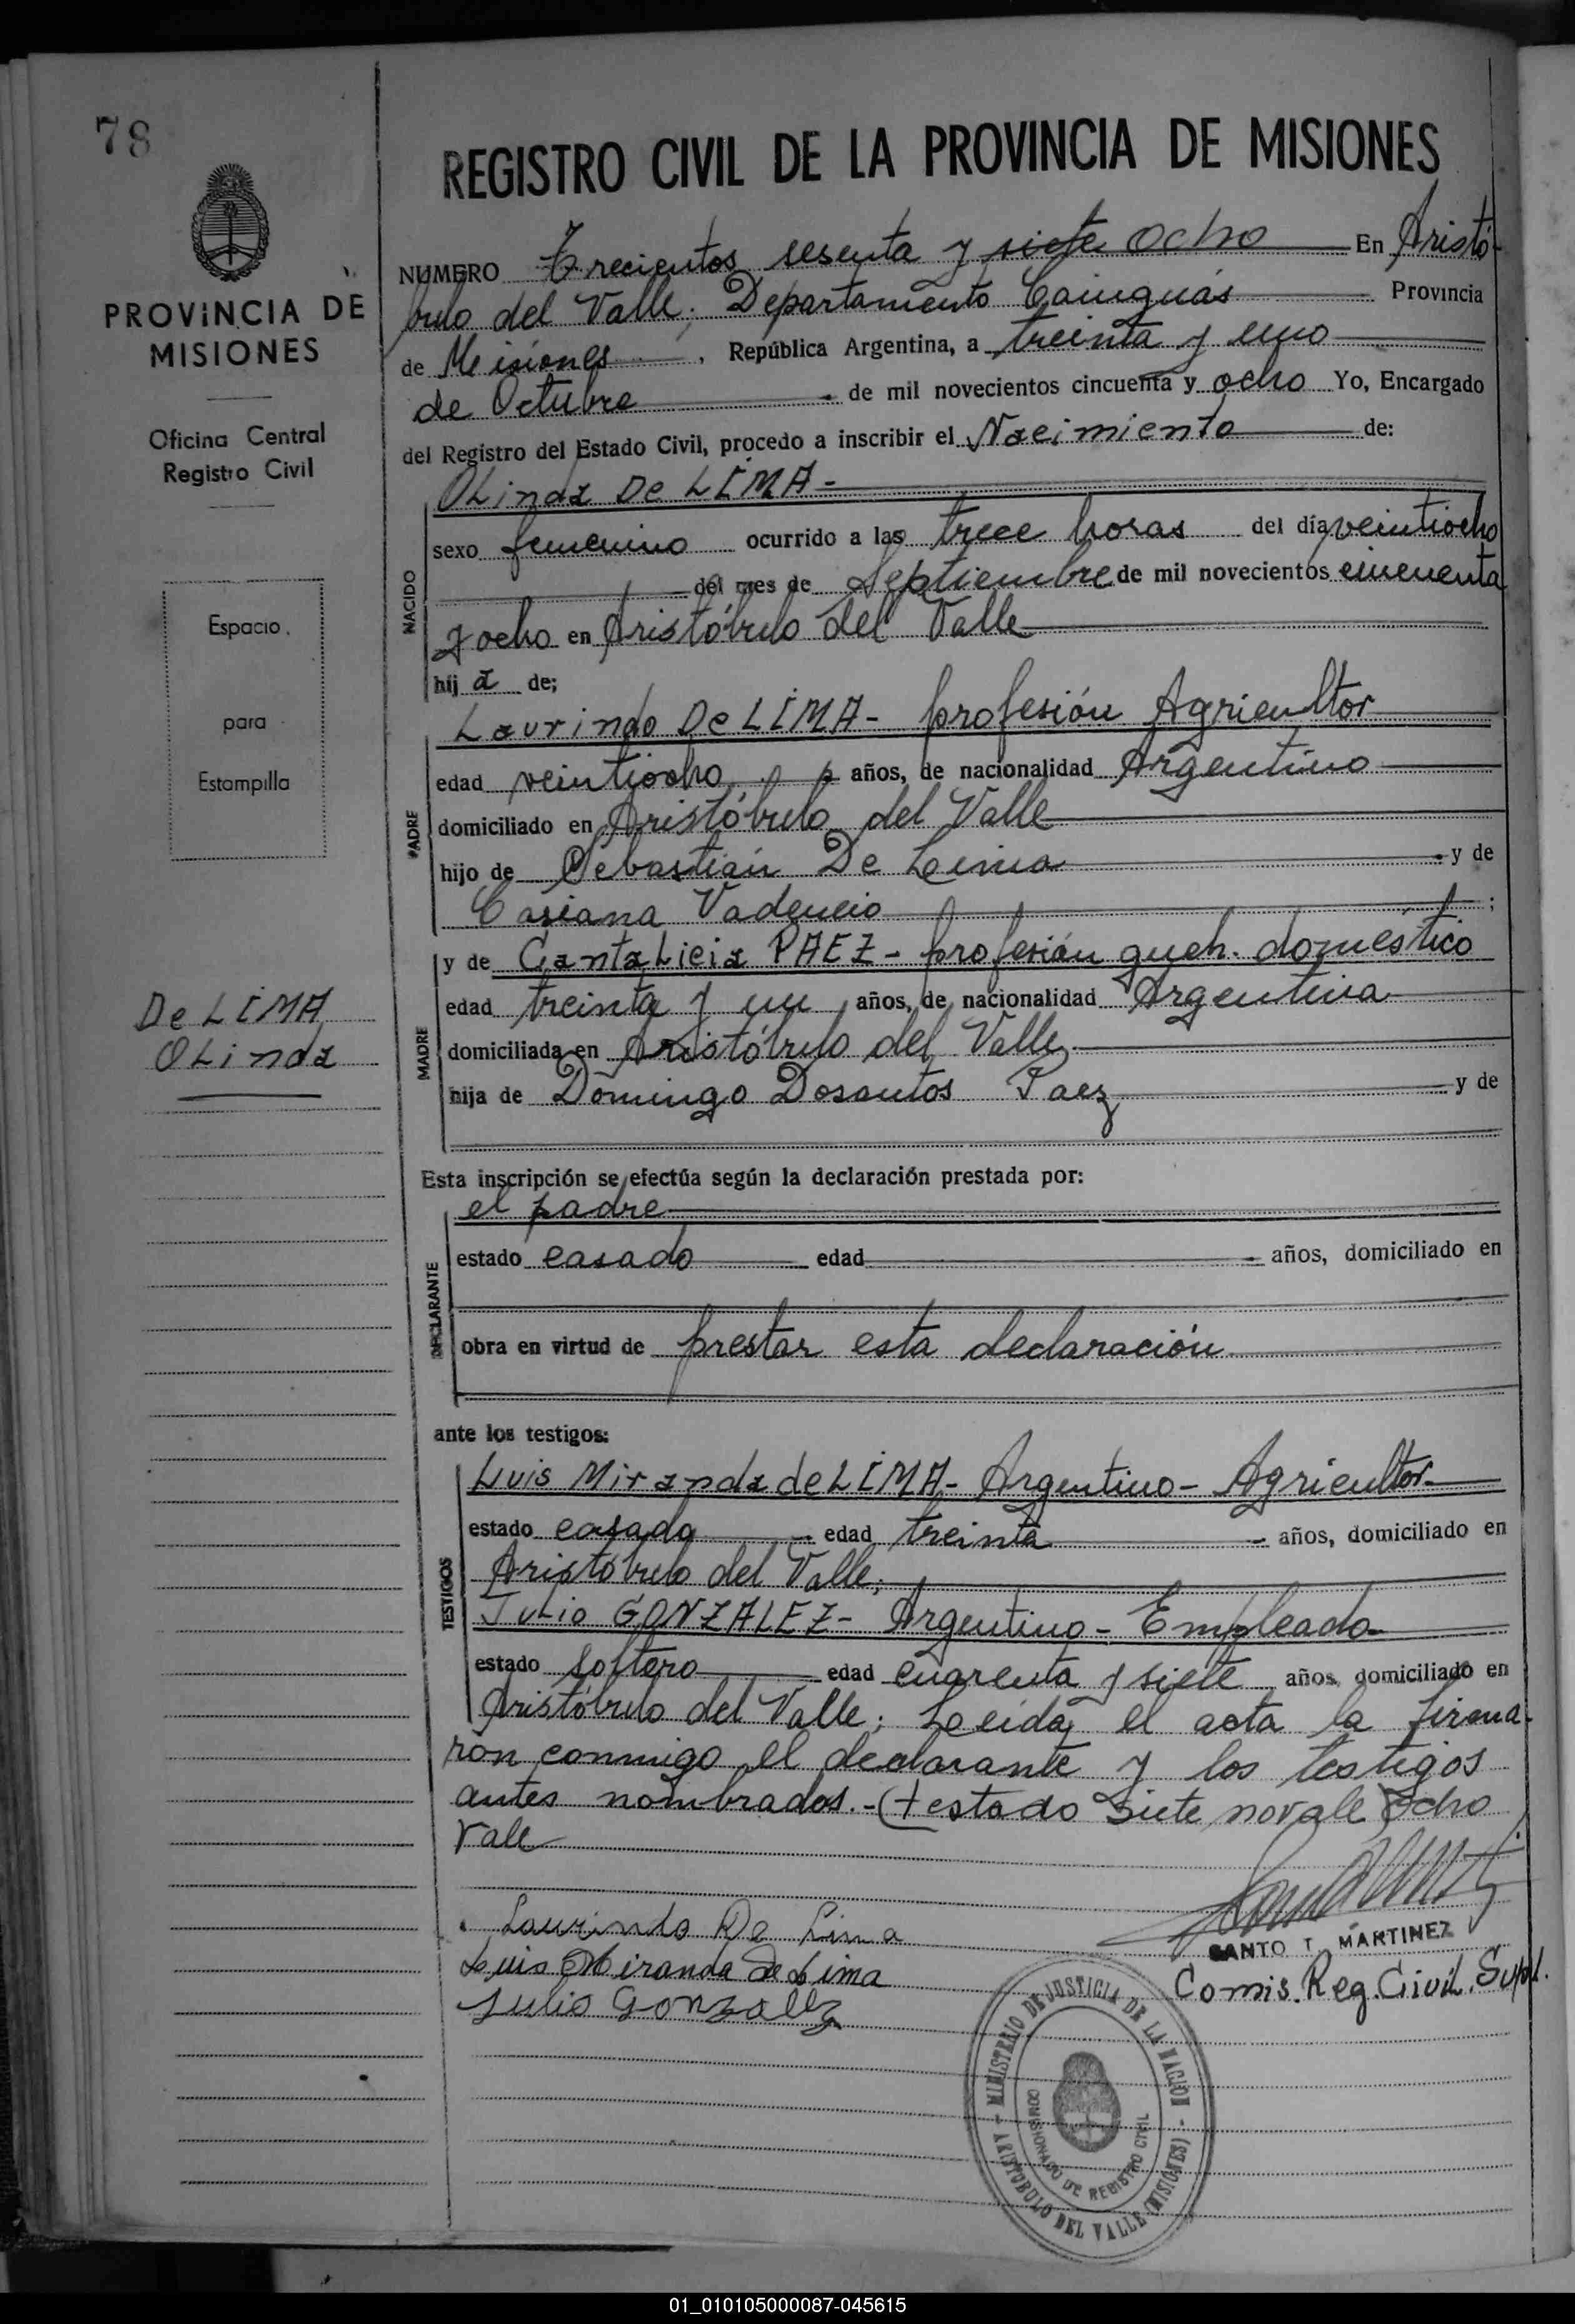 78
PROVINCIA DE
MISIONES
Oficina Central
Registro Civil
Espacio
para
Estampilla
De LIMA
OLinda
REGISTRO CIVIL DE LA PROVINCIA DE MISIONES
NUMERO Trecientos sesenta y siete ocho En Aristó-
bulo del Valle; Departamento Cainguás Provincia
de Misiones, República Argentina, a treinta y uno
de Octubre de mil novecientos cincuenta y ocho Yo, Encargado
del Registro del Estado Civil, procedo a inscribir el Nacimiento de:
NACIDO
OLinda De LIMA-
sexo femenino ocurrido a las trece horas del día veintiocho
del mes de Septiembre de mil novecientos cincuenta
y ocho en Aristóbulo del Valle
hij a de;
PADRE
Laurindo De LIMA- profesión Agricultor
edad veintiocho años, de nacionalidad Argentino
domiciliado en Aristóbulo del Valle
hijo de Sebastián De Leima y de
Casiana Vadencio ;
MADRE
y de CantaLicia PAEZ- profesión queh. doméstico
edad treinta y un años, de nacionalidad Argentina
domiciliada en Aristóbulo del Valle
hija de Domingo Dosantos Paez y de
Esta inscripción se efectúa según la declaración prestada por:
DECLARANTE
el padre
estado casado edad años, domiciliado en
obra en virtud de prestar esta declaración
ante los testigos:
TESTIGOS
Luis Miranda de LIMA- Argentino- Agricultor-
estado casado edad treinta años, domiciliado en
Aristóbulo del Valle;
Julio GONZALEZ- Argentino- Empleado-
estado soltero edad cuarenta y siete años, domiciliado en
Aristóbulo del Valle; Leída el acta la firma-
ron conmigo el declarante y los testigos
antes nombrados.-(testado siete no vale ocho
vale
Laurindo De Lima
Luis Miranda de Lima
Julio Gonzalez
SANTO T. MARTINEZ
Comis. Reg. Civil. Supl.
MINISTERIO DE JUSTICIA DE LA NACION
COMISIONADO DE REGISTRO CIVIL
ARISTOBULO DEL VALLE (MISIONES)
01_010105000087-045615